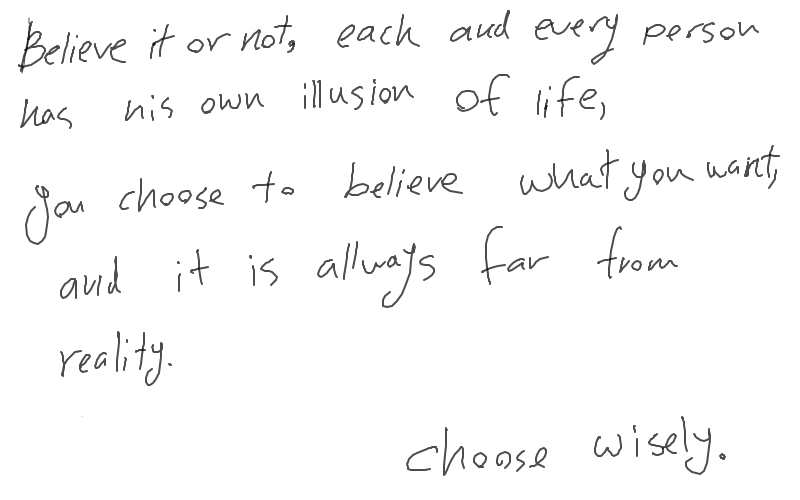 Believe it or not, each and every person
has his own illusion of life,
you choose to believe what you want,
and it is allways far from
reality.
choose wisely.